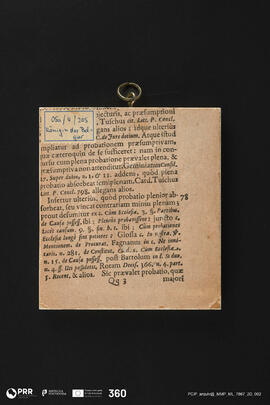 jecturis, ac præsumptioni
05a/4/205
Tuschus cit. Litt. P. Concl.
Königin der Bel-
gans alios: idque ulterius
gier
C. de Jure dotium. Atque istud
ampliatur ad probationem præsumptivam,
quæ cæteroquin de se sufficeret: nam in con-
cursu cum plena probatione prævalet plena, &
præsumptiva non attenditur. Geminianus Consil.
27. Super dubio, n. 1. & 11. addens, quòd plena
probatio absorbeat semiplenam. Card. Tuschus
Litt. P. Concl. 798. allegans alios.
Infertur ulterius, quòd probatio plenior ab- 78
sorbeat, seu vincat contrariam minus plenam;
prout desumitur ex c. Cum Ecclesia, 3. §. Partibus,
de Causa posses. ibi; Pleniùs probavissent: juncto 4.
Licet causam. 9. §. fin. h. t. ibi; Cum probationes
Ecclesiæ longè sint potiores: Glossa c. In nostra, V.
Munimentum. de Procurat. Fagnanus in c. Ne inni-
taris, n. 281. de Constitut. & d. c. Cum Ecclesia. 2.
n. 15. de Causa posses. post Bartolum in l. Si duo,
n. 4. ff. Uti possidetis, Rotam Decis. 366. n. 4. part.
5. Recent. & alios. Sic prævalet probatio, quæ
Qq 3
majori
PRR
360
PCIP_arquip@_MMP_ML_7867_2D_002